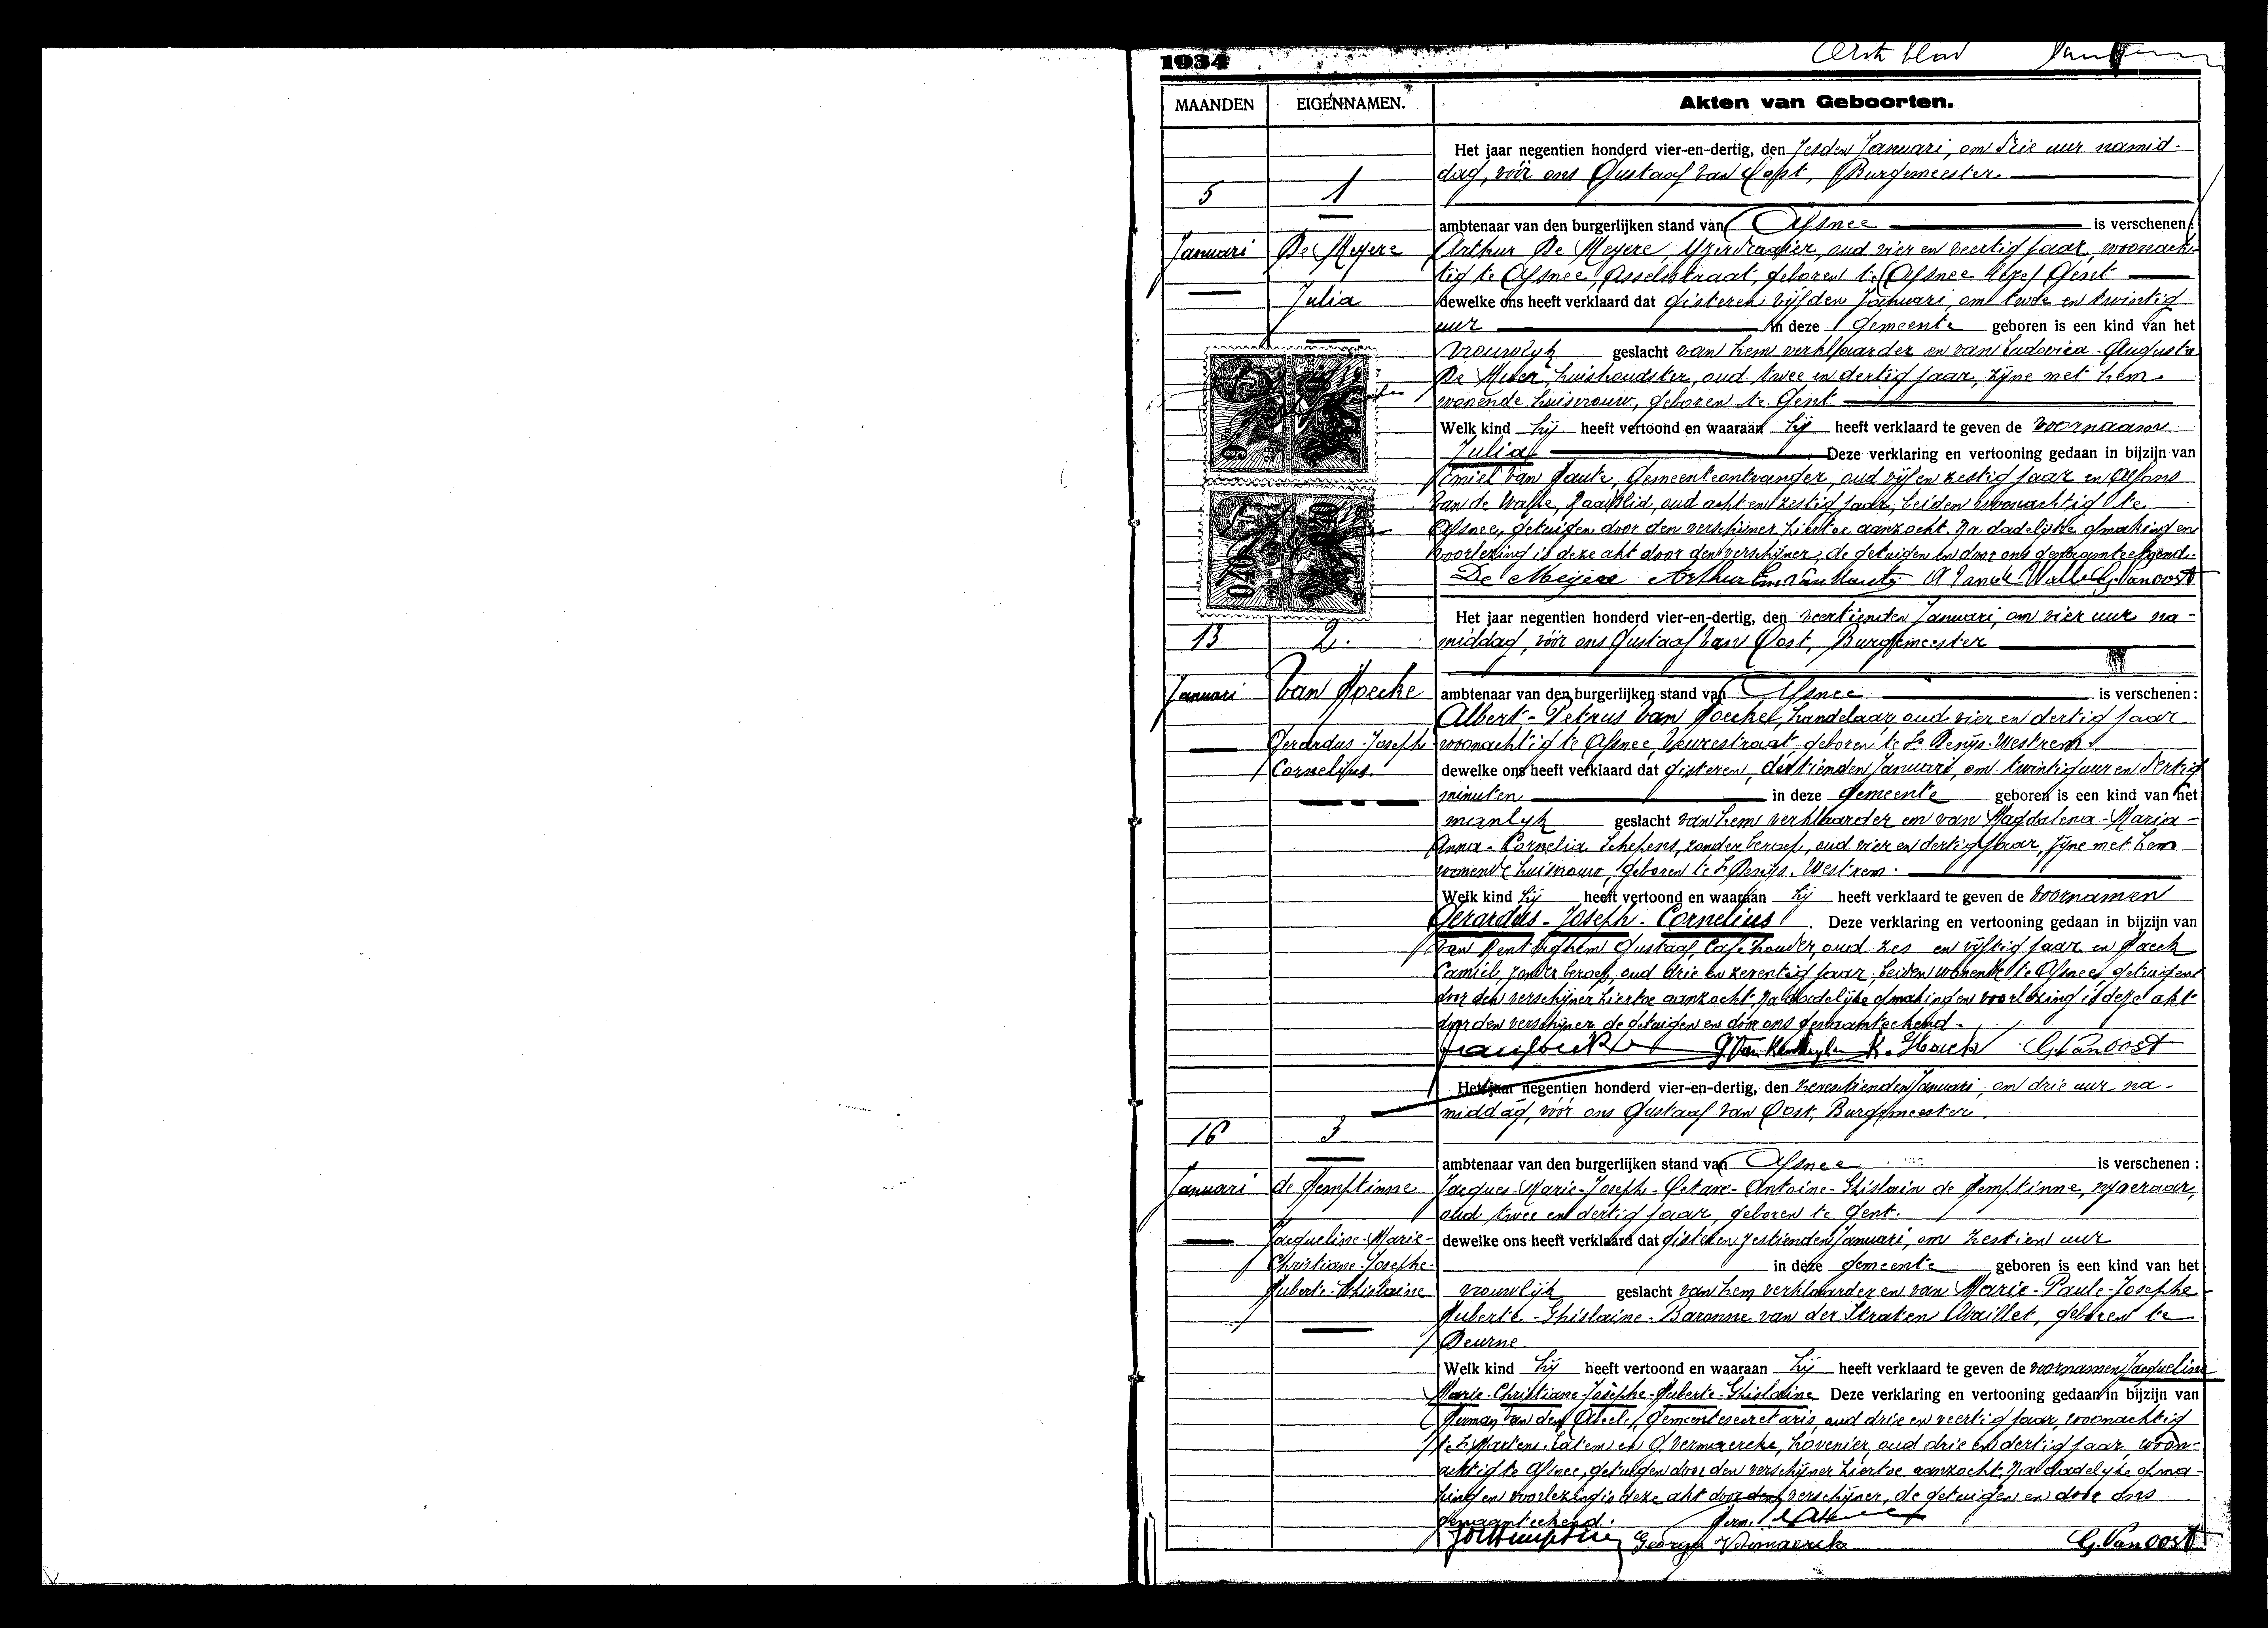 1934
Eerste blad
MAANDEN EIGENNAMEN. Akten van Geboorten.
Het jaar negentien honderd vier-en-dertig, den zesden Januari, om drie uur namid-
dag, vóór ons Gustaaf Van Oost, Burgemeester.
5 1
ambtenaar van den burgerlijken stand van Afsnee is verschenen:
Januari De Meyere Arthur De Meyere, Yzerdraaier, oud vier en veertig jaar, woonach-
tig te Afsnee, Asselsstraat, geboren te Afsnee
Julia dewelke ons heeft verklaard dat gisteren vijfden Januari, om twee en twintig
uur in deze gemeente geboren is een kind van het
vrouwlyk geslacht van hem verklaarder en van Ludovica-Augusta
De Meyer huishoudster, oud twee en dertig jaar, zijne met hem
wonende huisvrouw, geboren te Gent
Welk kind hij heeft vertoond en waaraan hij heeft verklaard te geven de voornaam
Julia Deze verklaring en vertooning gedaan in bijzijn van
Emiel Van Haute, Gemeenteontvanger, oud vijf en zestig jaar en Alfons
Van de Walle, Raadslid, oud acht en zestig jaar, beiden woonachtig te
Afsnee, getuigen door den verschijner hiertoe aanzocht. Na dadelijke opmaking en
voorlezing is deze akt door den verschijner, de getuigen en door ons genaamteekend.
De Meyere Arthur Em Van Haute A Van de Walle G. Van oost
Het jaar negentien honderd vier-en-dertig, den veertienden Januari, om vier uur na-
13 2. middag, vóór ons Gustaaf Van Oost, Burgemeester
Januari Van Hoecke ambtenaar van den burgerlijken stand van Afsnee is verschenen:
Albert-Petrus Van Hoecke, handelaar, oud vier en dertig jaar
Gerardus-Joseph- woonachtig te Afsnee, Veurestraat, geboren te St Denijs-Westrem.
Cornelius. dewelke ons heeft verklaard dat gisteren, dertienden Januari, om twintig uur en dertig
minuten in deze gemeente geboren is een kind van het
manlyk geslacht van hem verklaarder en van Magdalena-Maria-
Anna-Cornelia Schepens, zonder beroep, oud vier en dertig jaar, zijne met hem
wonende huisvrouw, geboren te St Denijs-Westrem.
Welk kind hij heeft vertoond en waaraan hij heeft verklaard te geven de voornamen
Gerardus-Joseph-Cornelius. Deze verklaring en vertooning gedaan in bijzijn van
Van Renterghem Gustaaf, Cafehouder, oud zes en vijftig jaar en Haeck
Camiel, zonder beroep, oud drie en zeventig jaar, beiden wonende te Afsnee, getuigen
door den verschijner hiertoe aanzocht. Na dadelijke opmaking en voorlezing is deze akt
door den verschijner de getuigen en door ons genaamteekend.
G. Van Renterghem K. Haeck G. Van oost
Het jaar negentien honderd vier-en-dertig, den zeventienden Januari, om drie uur na-
middag, vóór ons Gustaaf Van Oost, Burgemeester.
16 3
ambtenaar van den burgerlijken stand van Afsnee is verschenen:
Januari de Hemptinne Jacques-Marie-Joseph-Octave-Antoine-Ghislain de Hemptinne, nyveraar,
oud twee en dertig jaar, geboren te Gent.
Jacqueline-Marie- dewelke ons heeft verklaard dat gisteren zestienden Januari, om zestien uur
Christiane-Josephe- in deze gemeente geboren is een kind van het
Huberte-Ghislaine vrouwlijk geslacht van hem verklaarder en van Marie-Paule-Josephe-
Huberte-Ghislaine-Baronne van der Straten Waillet, geboren te
Deurne
Welk kind hij heeft vertoond en waaraan hij heeft verklaard te geven de voornamen Jacqueline
Marie-Christiane-Josephe-Huberte-Ghislaine Deze verklaring en vertooning gedaan in bijzijn van
Herman Van den Abeele, Gemeentesecretaris, oud drie en veertig jaar, woonachtig
te St Martens-Latem en G. Vermaercke, hovenier, oud drie en dertig jaar, woon-
achtig te Afsnee, getuigen door den verschijner hiertoe aanzocht. Na dadelyke opma-
king en voorlezing is deze akt door den verschijner, de getuigen en door ons
genaamteekend.
Georges Vermaercke G. Van oost